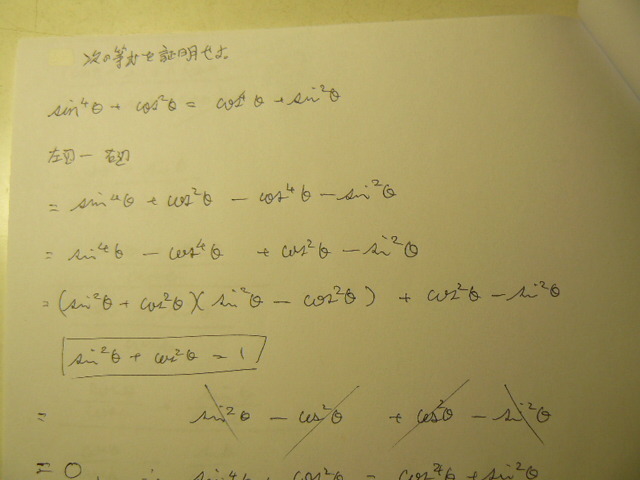 次の等式を証明せよ。
sin⁴θ + cos²θ = cos⁴θ + sin²θ
左辺 − 右辺
= sin⁴θ + cos²θ − cos⁴θ − sin²θ
= sin⁴θ − cos⁴θ + cos²θ − sin²θ
= (sin²θ + cos²θ)(sin²θ − cos²θ) + cos²θ − sin²θ
sin²θ + cos²θ = 1
= sin²θ − cos²θ + cos²θ − sin²θ
= 0
sin⁴θ + cos²θ = cos⁴θ + sin²θ